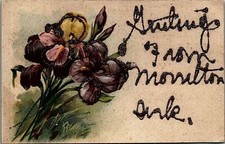 Greetings
From
Morrilton
Ark.